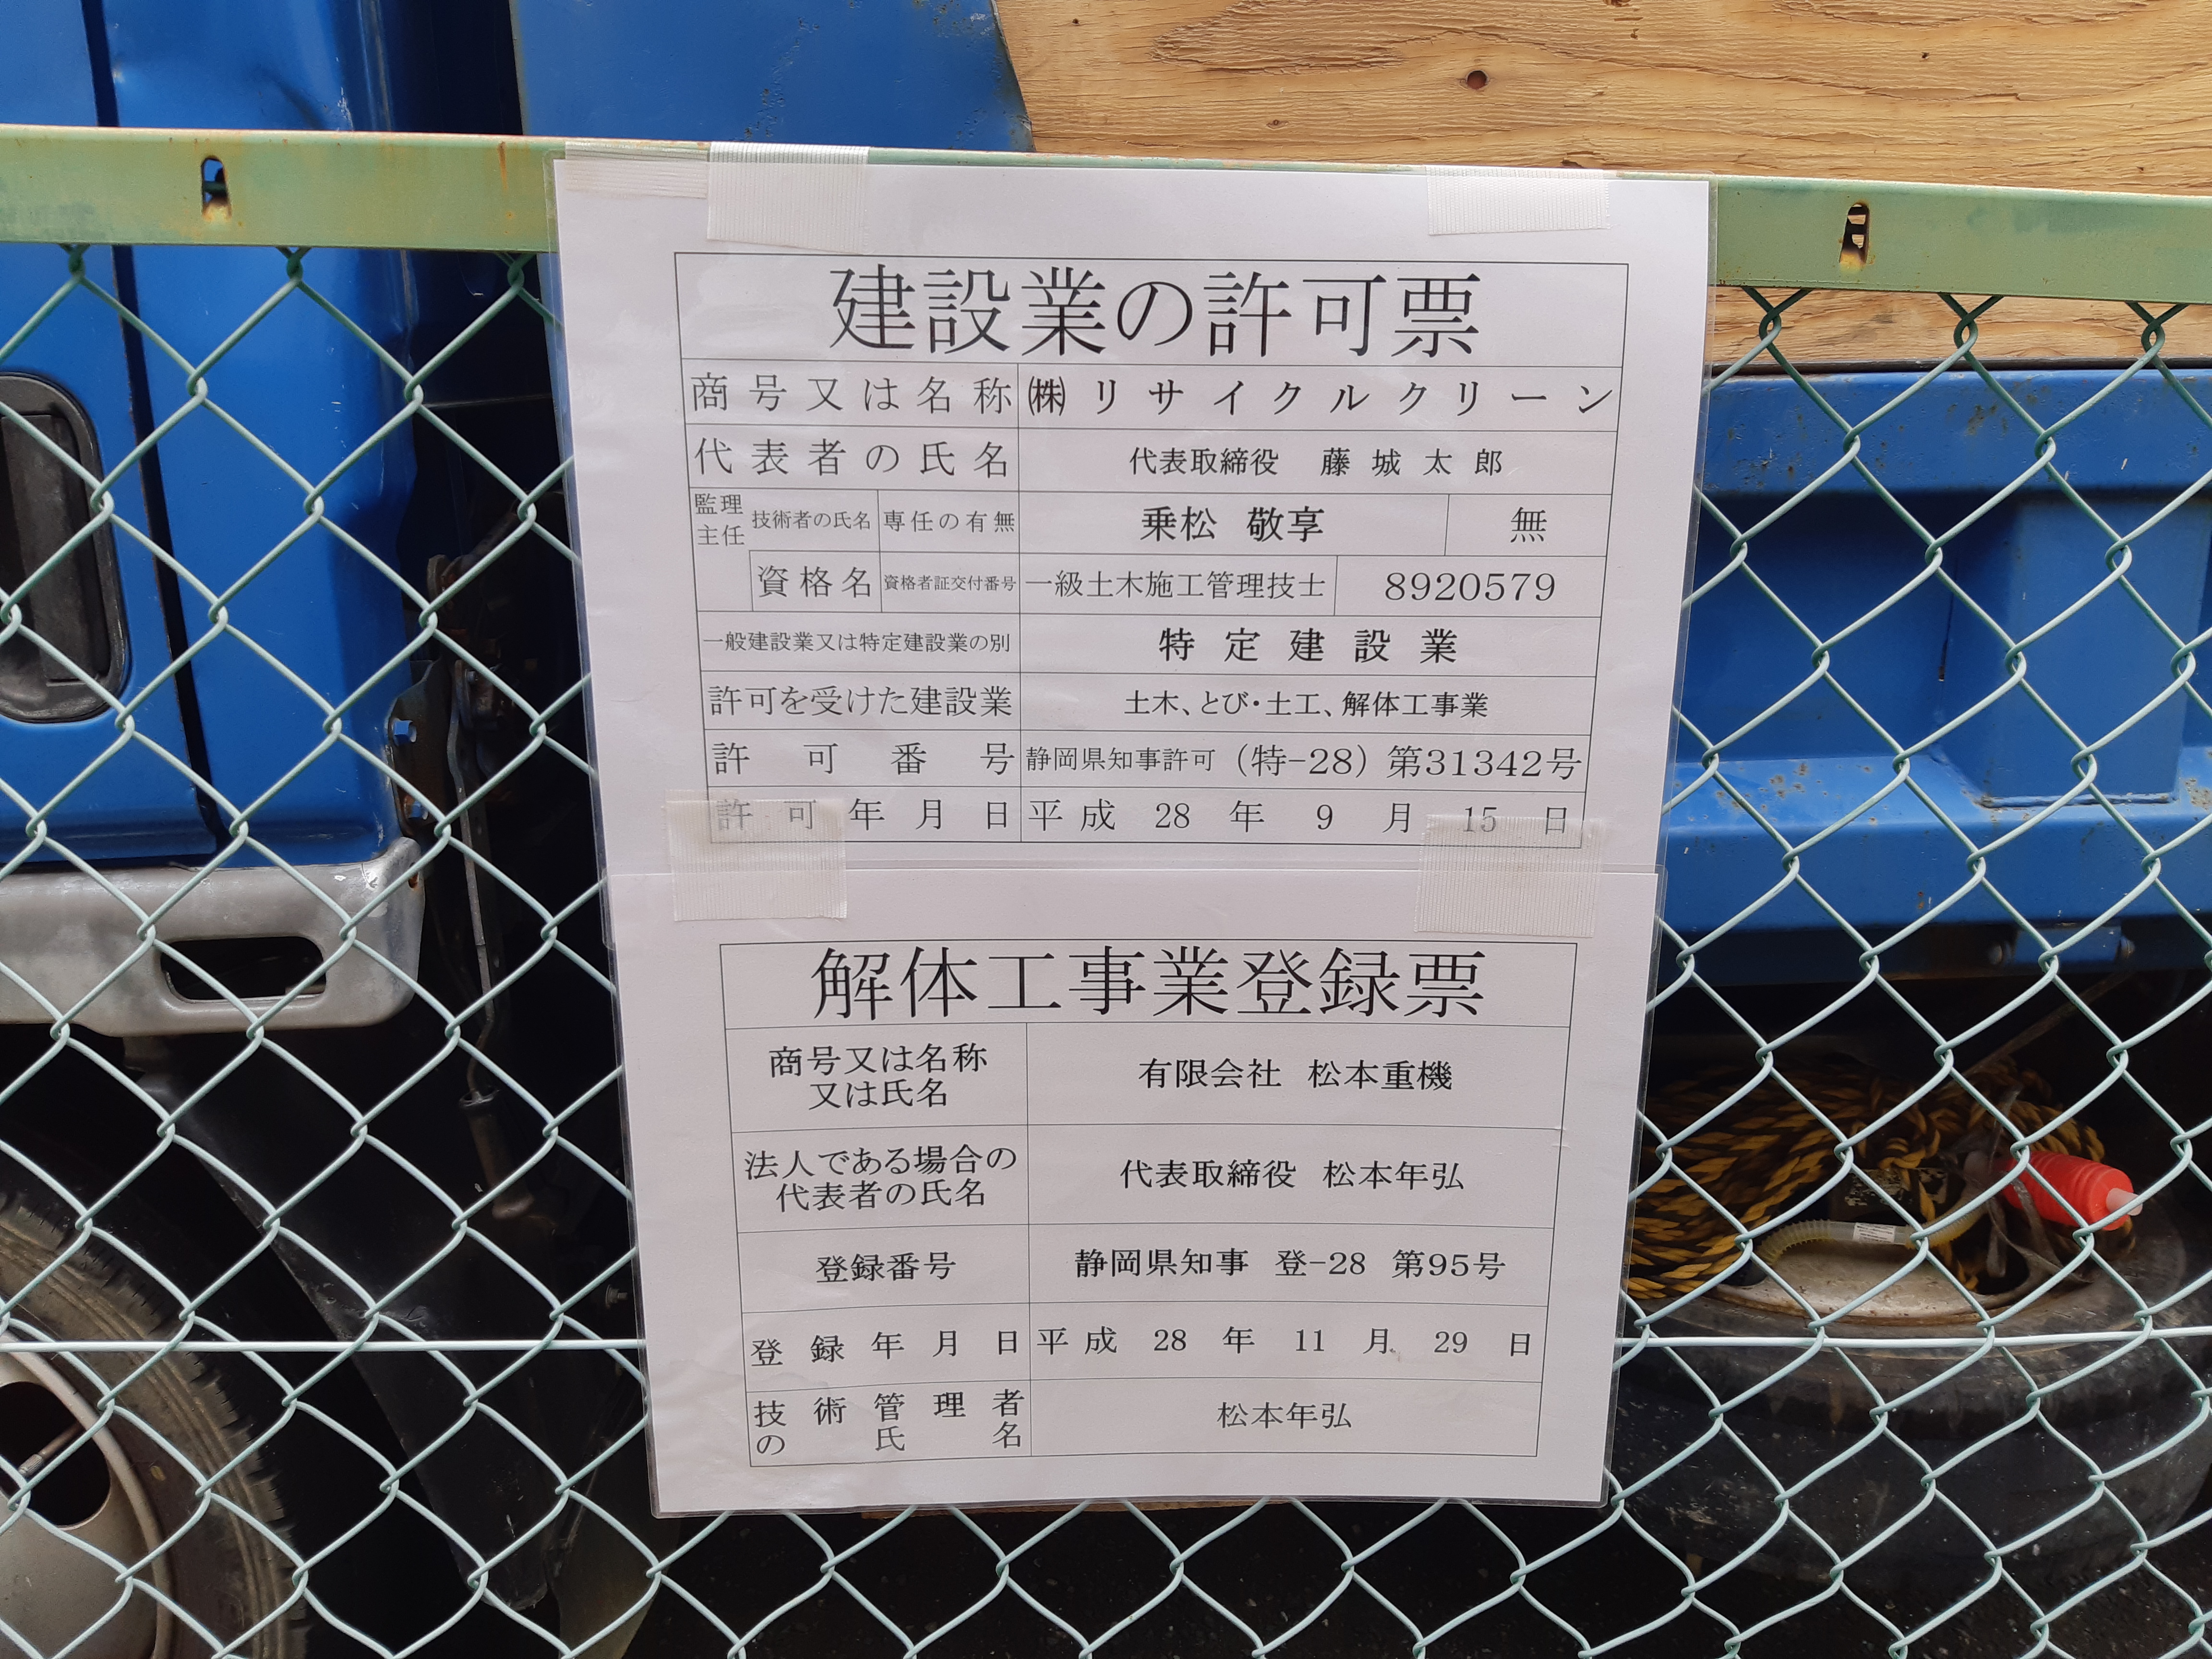 建設業の許可票
商号又は名称 ㈱リサイクルクリーン
代表者の氏名 代表取締役 藤城太郎
監理
主任 技術者の氏名 専任の有無 乗松 敬享 無
資格名 資格者証交付番号 一級土木施工管理技士 8920579
一般建設業又は特定建設業の別 特定建設業
許可を受けた建設業 土木、とび・土工、解体工事業
許可番号 静岡県知事許可（特-28）第31342号
許可年月日 平成 28 年 9 月 15 日
解体工事業登録票
商号又は名称
又は氏名 有限会社 松本重機
法人である場合の
代表者の氏名 代表取締役 松本年弘
登録番号 静岡県知事 登-28 第95号
登録年月日 平成 28 年 11 月 29 日
技術管理者
の氏名 松本年弘